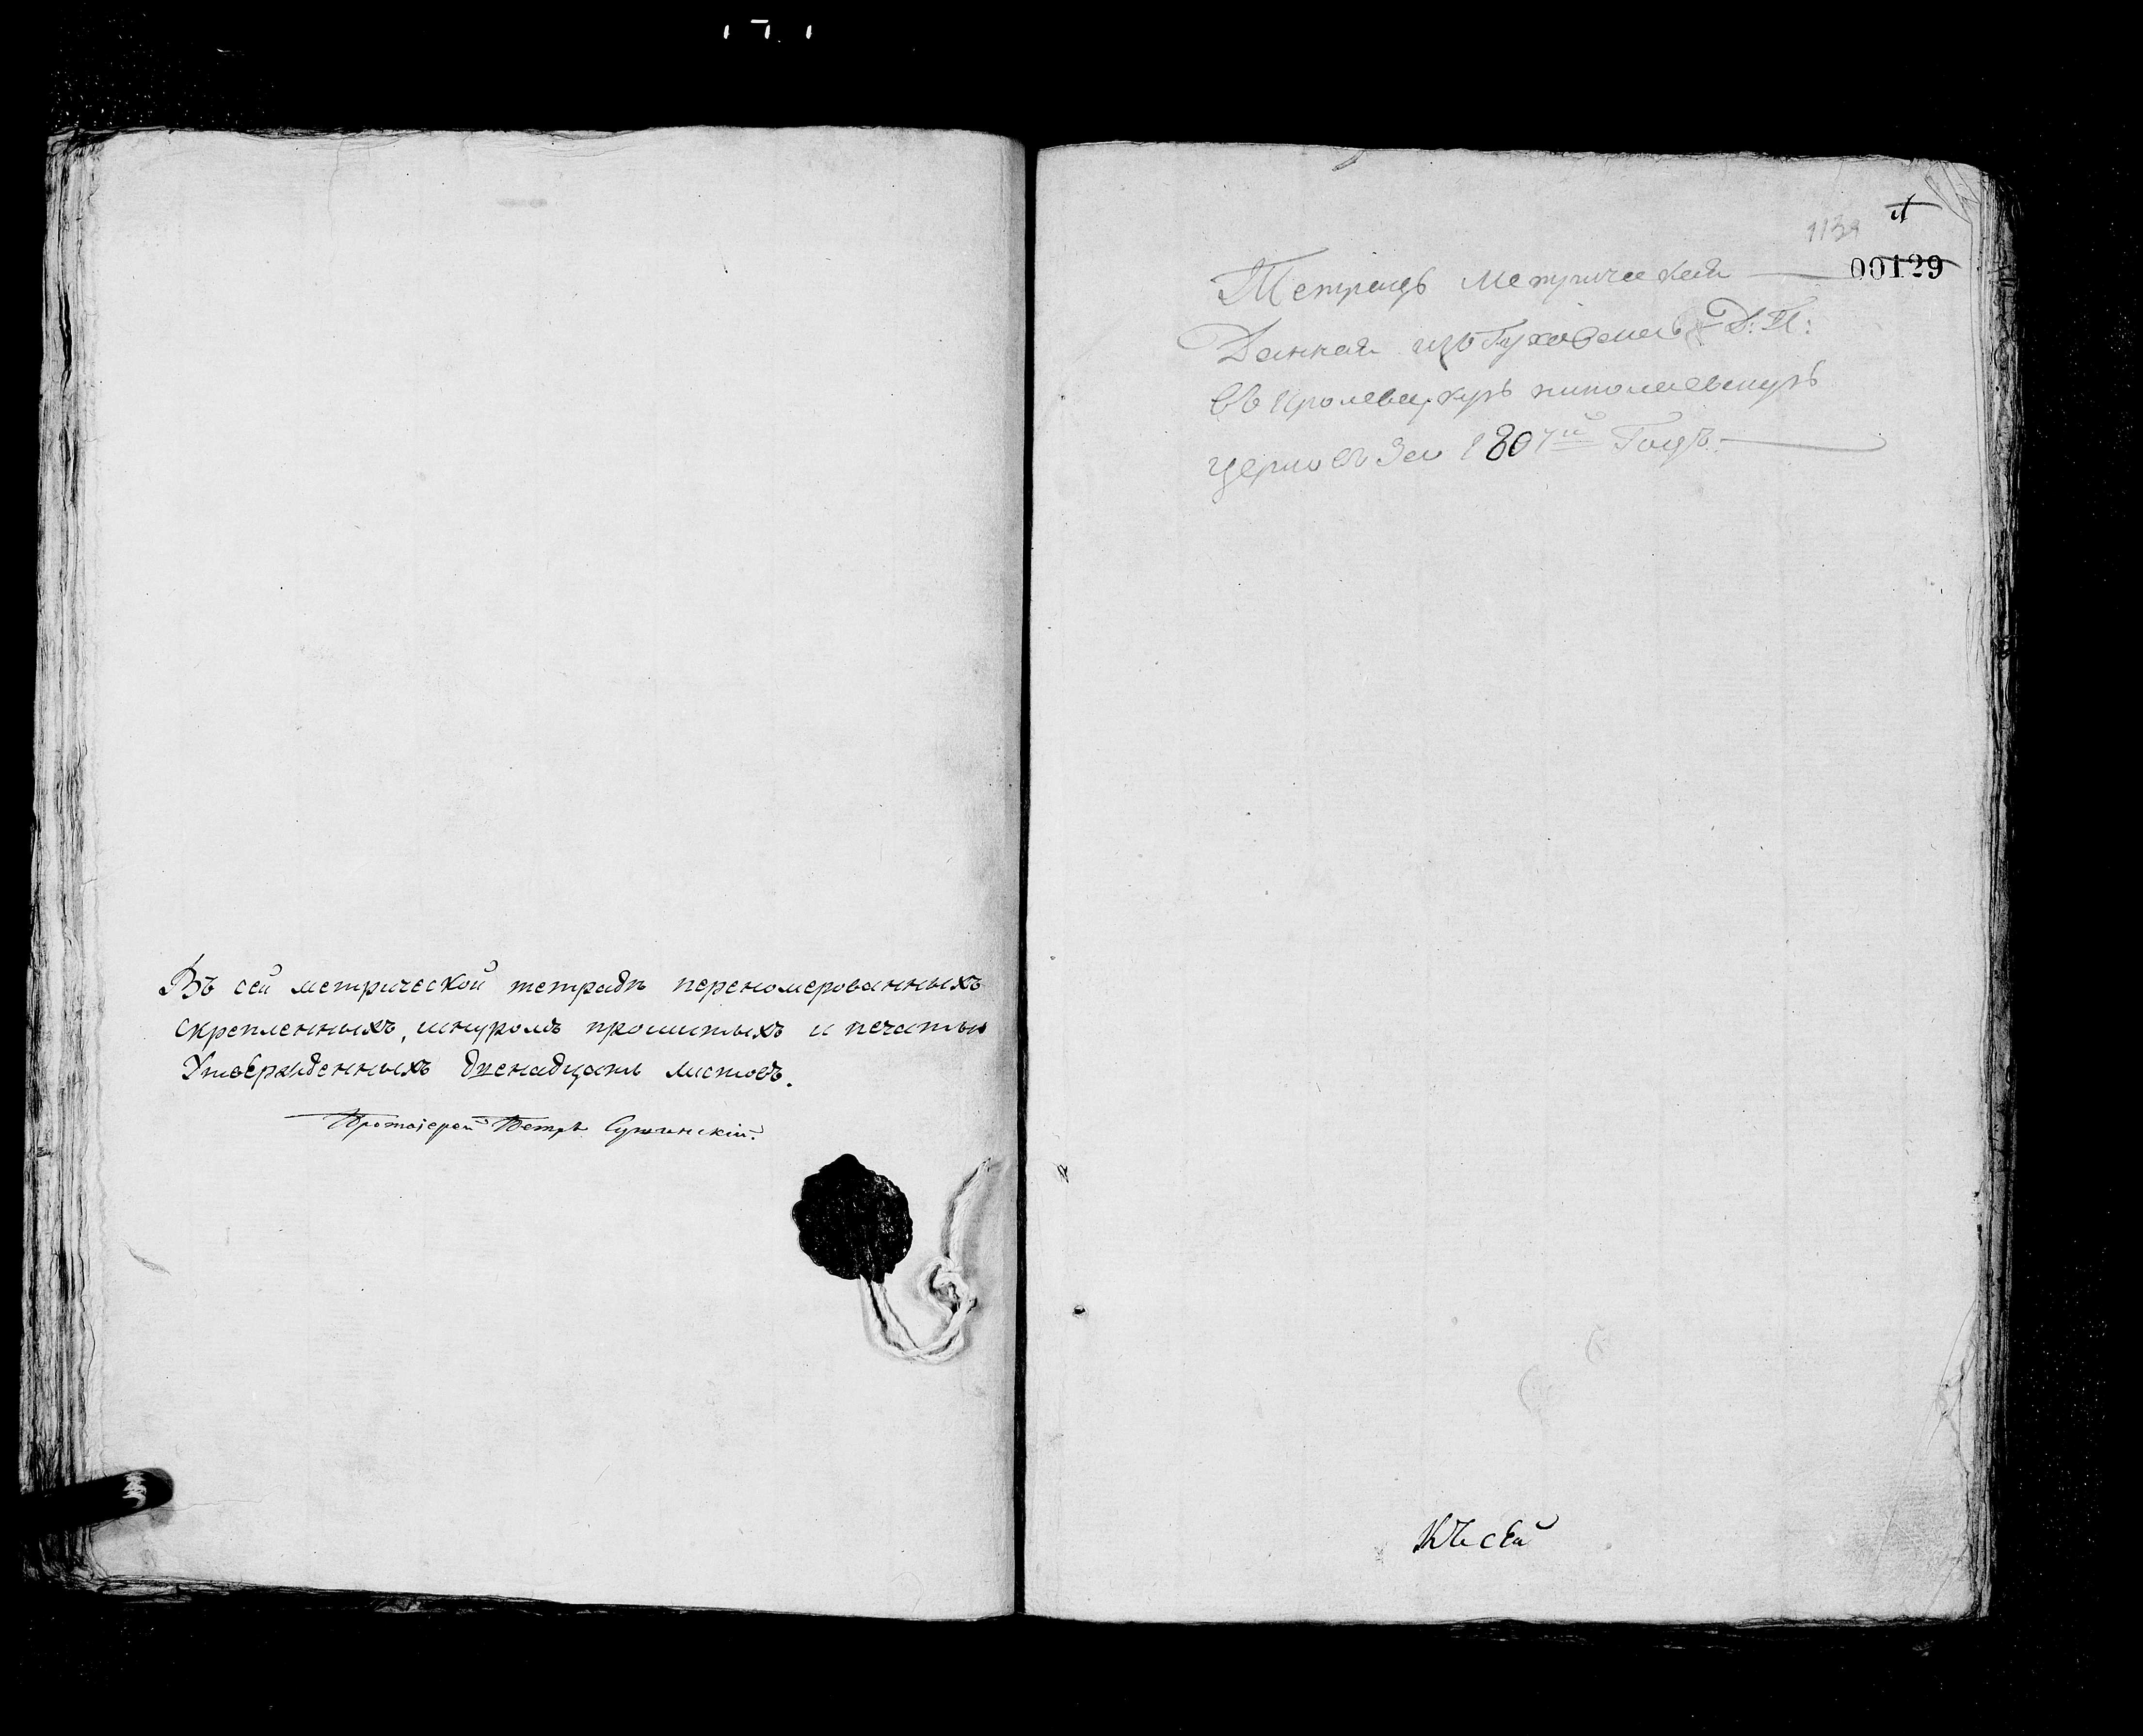 Въ сей метрической тетради переномерованныхъ
скрепленныхъ, шнуромъ прошитыхъ и печатью
Утвержденныхъ двенадцать листовъ.
Протоіерей Петръ Сушинскій.
00129
Тетрадь Метрическая
Данная изъ Духовнаго Д: П:
въ Кролевецкую николаевскую
церковь За 1807й Годъ
Къ сей